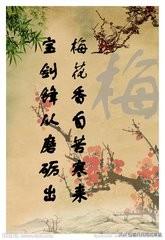 宝剑锋从磨砺出
梅花香自苦寒来
梅